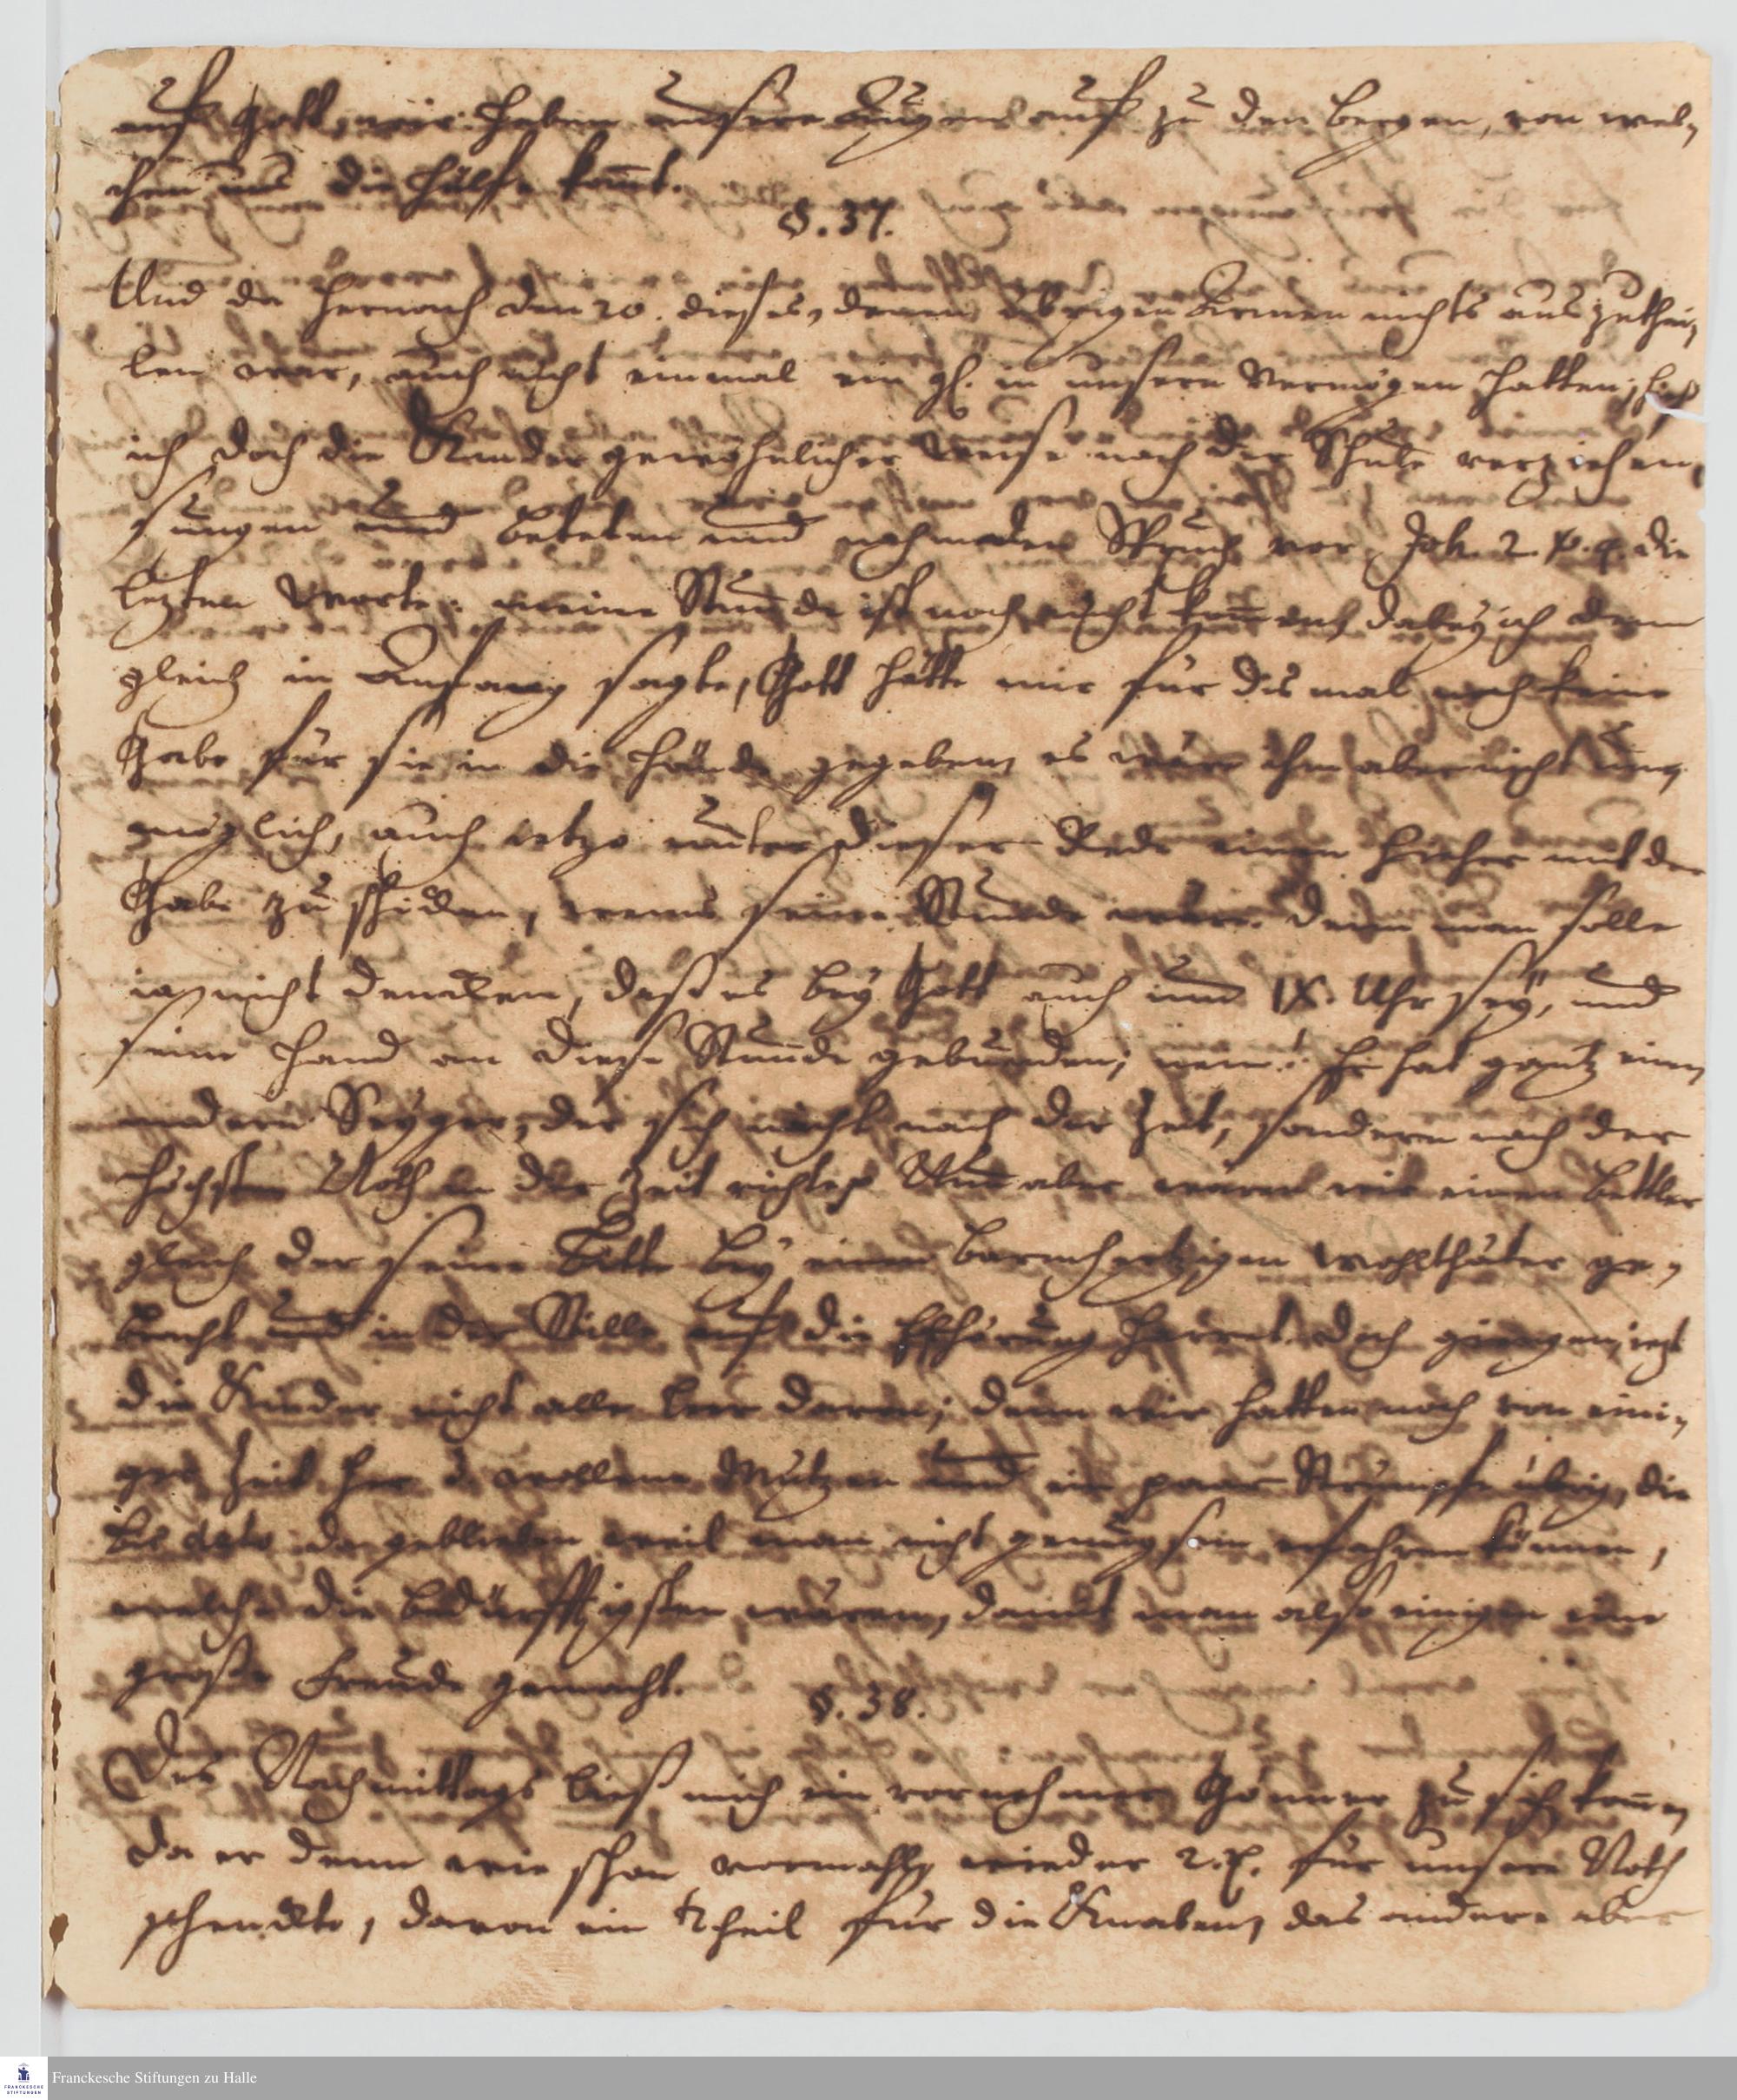 auf Gott, wir haben unsere Augen auf zu den Bergen, von wel,
chen uns die Hülfe kom̄t.
§. 37.
Und da hernach den 20. dieses, denen übrigen Armen nichts auszuthei,
len war, auch nicht einmal ein gl. in unsern Vermögen hatten, ließ
ich doch die Kinder gewöhnlicher Weise nach der Schule verziehen,
sungen und beteten und nahm den Spruch vor Joh. 2. die
letzten Worte: meine Stunde ist noch nicht kom̄en, dabey ich denn
gleich in Anfang sagte, Gott hätte mir für dis mal noch keine
Gabe für sie in die Hände gegeben, es wäre ihm aber nicht un,
möglich, auch ietzo unter dieser Rede einen hieher mit der
Gabe zu schicken, wenns seine Stunde wäre. denn man solle
ia nicht dencken, daß es bey Gott auch um IX. Uhr sey, und
seine Hand an diese Stunde gebunden; nein! Er hat gantz einen
andern Seyger, der sich nicht nach der Zeit, sondern nach der
höchsten Noth in der Zeit richtet. Nun aber waren wir einem Bettler
gleich der seine Bitte bey einem barmhertzigen Wohlthäter ge,
bracht und in der Stille auf die Erhörung harret. doch giengen ietzt
die Kinder nicht alle leer davon; denn wir hatten noch von eini,
ger Zeit her 2 wollene Mützen und ein paar Strümpfe übrig, die
bis dato da geblieben weil man nicht genugsam erfahren können,
welche die bedürfftigsten wären, damit man also einigen eine
große Freude gemacht.
§. 38.
Des Nachmittags ließ mich ein vornehmer Gönner zu sich kom̄en,
da er denn wie schon vormahls wieder 2. für unsere Noth
schenckte, davon ein theil für die Knaben, das andere aber
Franckesche Stiftungen zu Halle
FRANCKESCHE
STIFTUNGEN